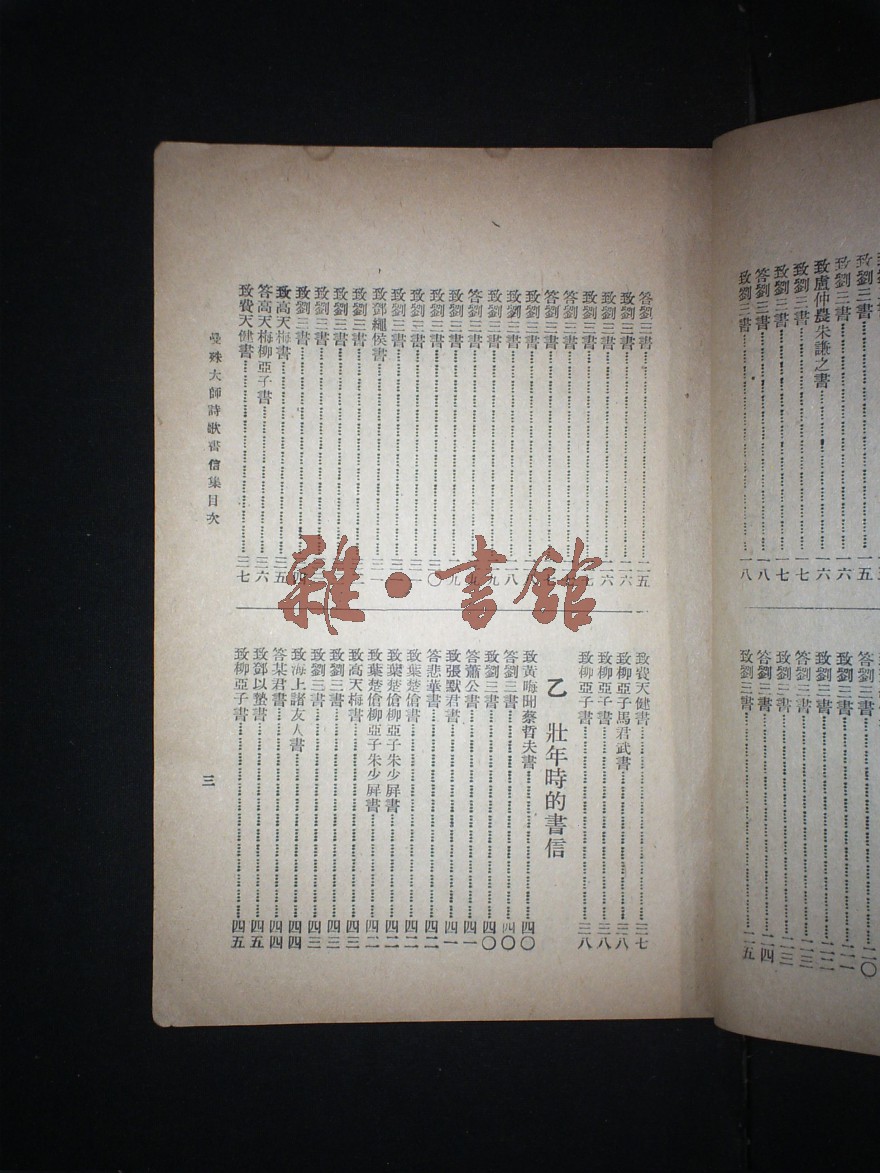 致劉三書 一五
致劉三書 一六
致盧仲農朱謙之書 一六
致劉三書 一七
致劉三書 一七
答劉三書 一八
致劉三書 一八
答劉三書 二〇
致劉三書 二一
致劉三書 二二
答劉三書 二三
致劉三書 二三
致劉三書 二四
致劉三書 二五
答劉三書 二五
致劉三書 二六
致劉三書 二六
致劉三書 二七
答劉三書
答劉三書 二七
致劉三書
致劉三書 二八
致劉三書 二九
致劉三書
致劉三書 二九
致劉三書 三〇
致劉三書
致劉三書
致鄧繩侯書 三一
致劉三書
致劉三書
致劉三書
致劉三書
致高天梅書 三五
答高天梅柳亞子書 三六
致費天健書 三七
致費天健書 三七
致柳亞子馬君武書 三八
致柳亞子書 三八
致柳亞子書 三八
乙 壯年時的書信
致黃晦聞蔡哲夫書 四〇
答劉三書 四〇
致劉三書 四〇
答蕭公書 四一
致張默君書 四一
答悲華書 四二
致葉楚傖書 四二
致葉楚傖柳亞子朱少屏書 四二
致葉楚傖柳亞子朱少屏書 四二
致高天梅書 四三
致劉三書 四三
致劉三書 四三
致海上諸友人書 四四
答某君書 四四
致鄧以蟄書 四五
致柳亞子書 四五
曼殊大師詩歌書信集目次
三
雜·書館